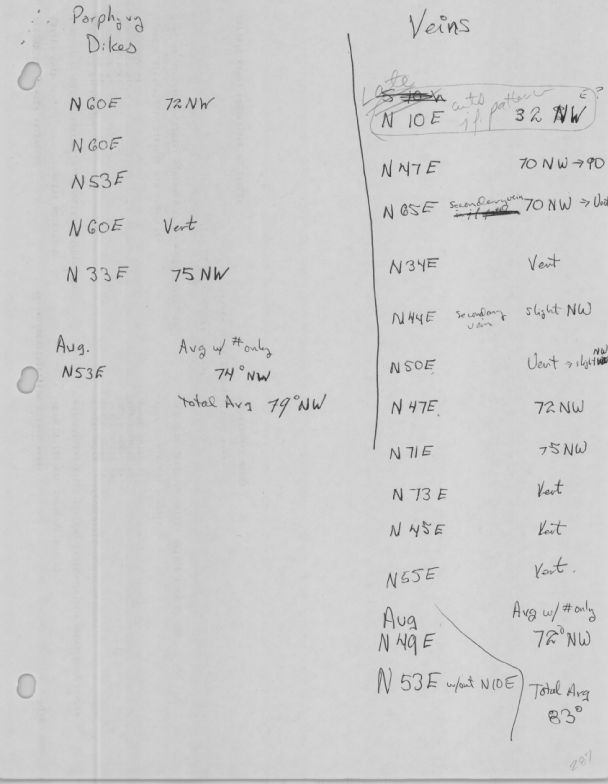 Porphyry
Dikes
N 60E 72NW
N 60E
N 53E
N 60E Vert
N 33E 75 NW
Avg. Avg w/ # only
N53E 74° NW
Total Avg 79° NW
Veins
Late
cuts pattern
N 10 E 32 NW E?
N 47E 70 NW → 90
N 65E secondary vein 70 NW → Vert
N 34E Vert
N 44E secondary vein slight NW
N 50E Vert → slight NW
N 47E. 72 NW
N 71E 75 NW
N 73 E Vert
N 45E Vert
N 55E Vert.
Avg Avg w/ # only
N 49 E 72° NW
N 53E w/out N10E Total Avg
83°
287